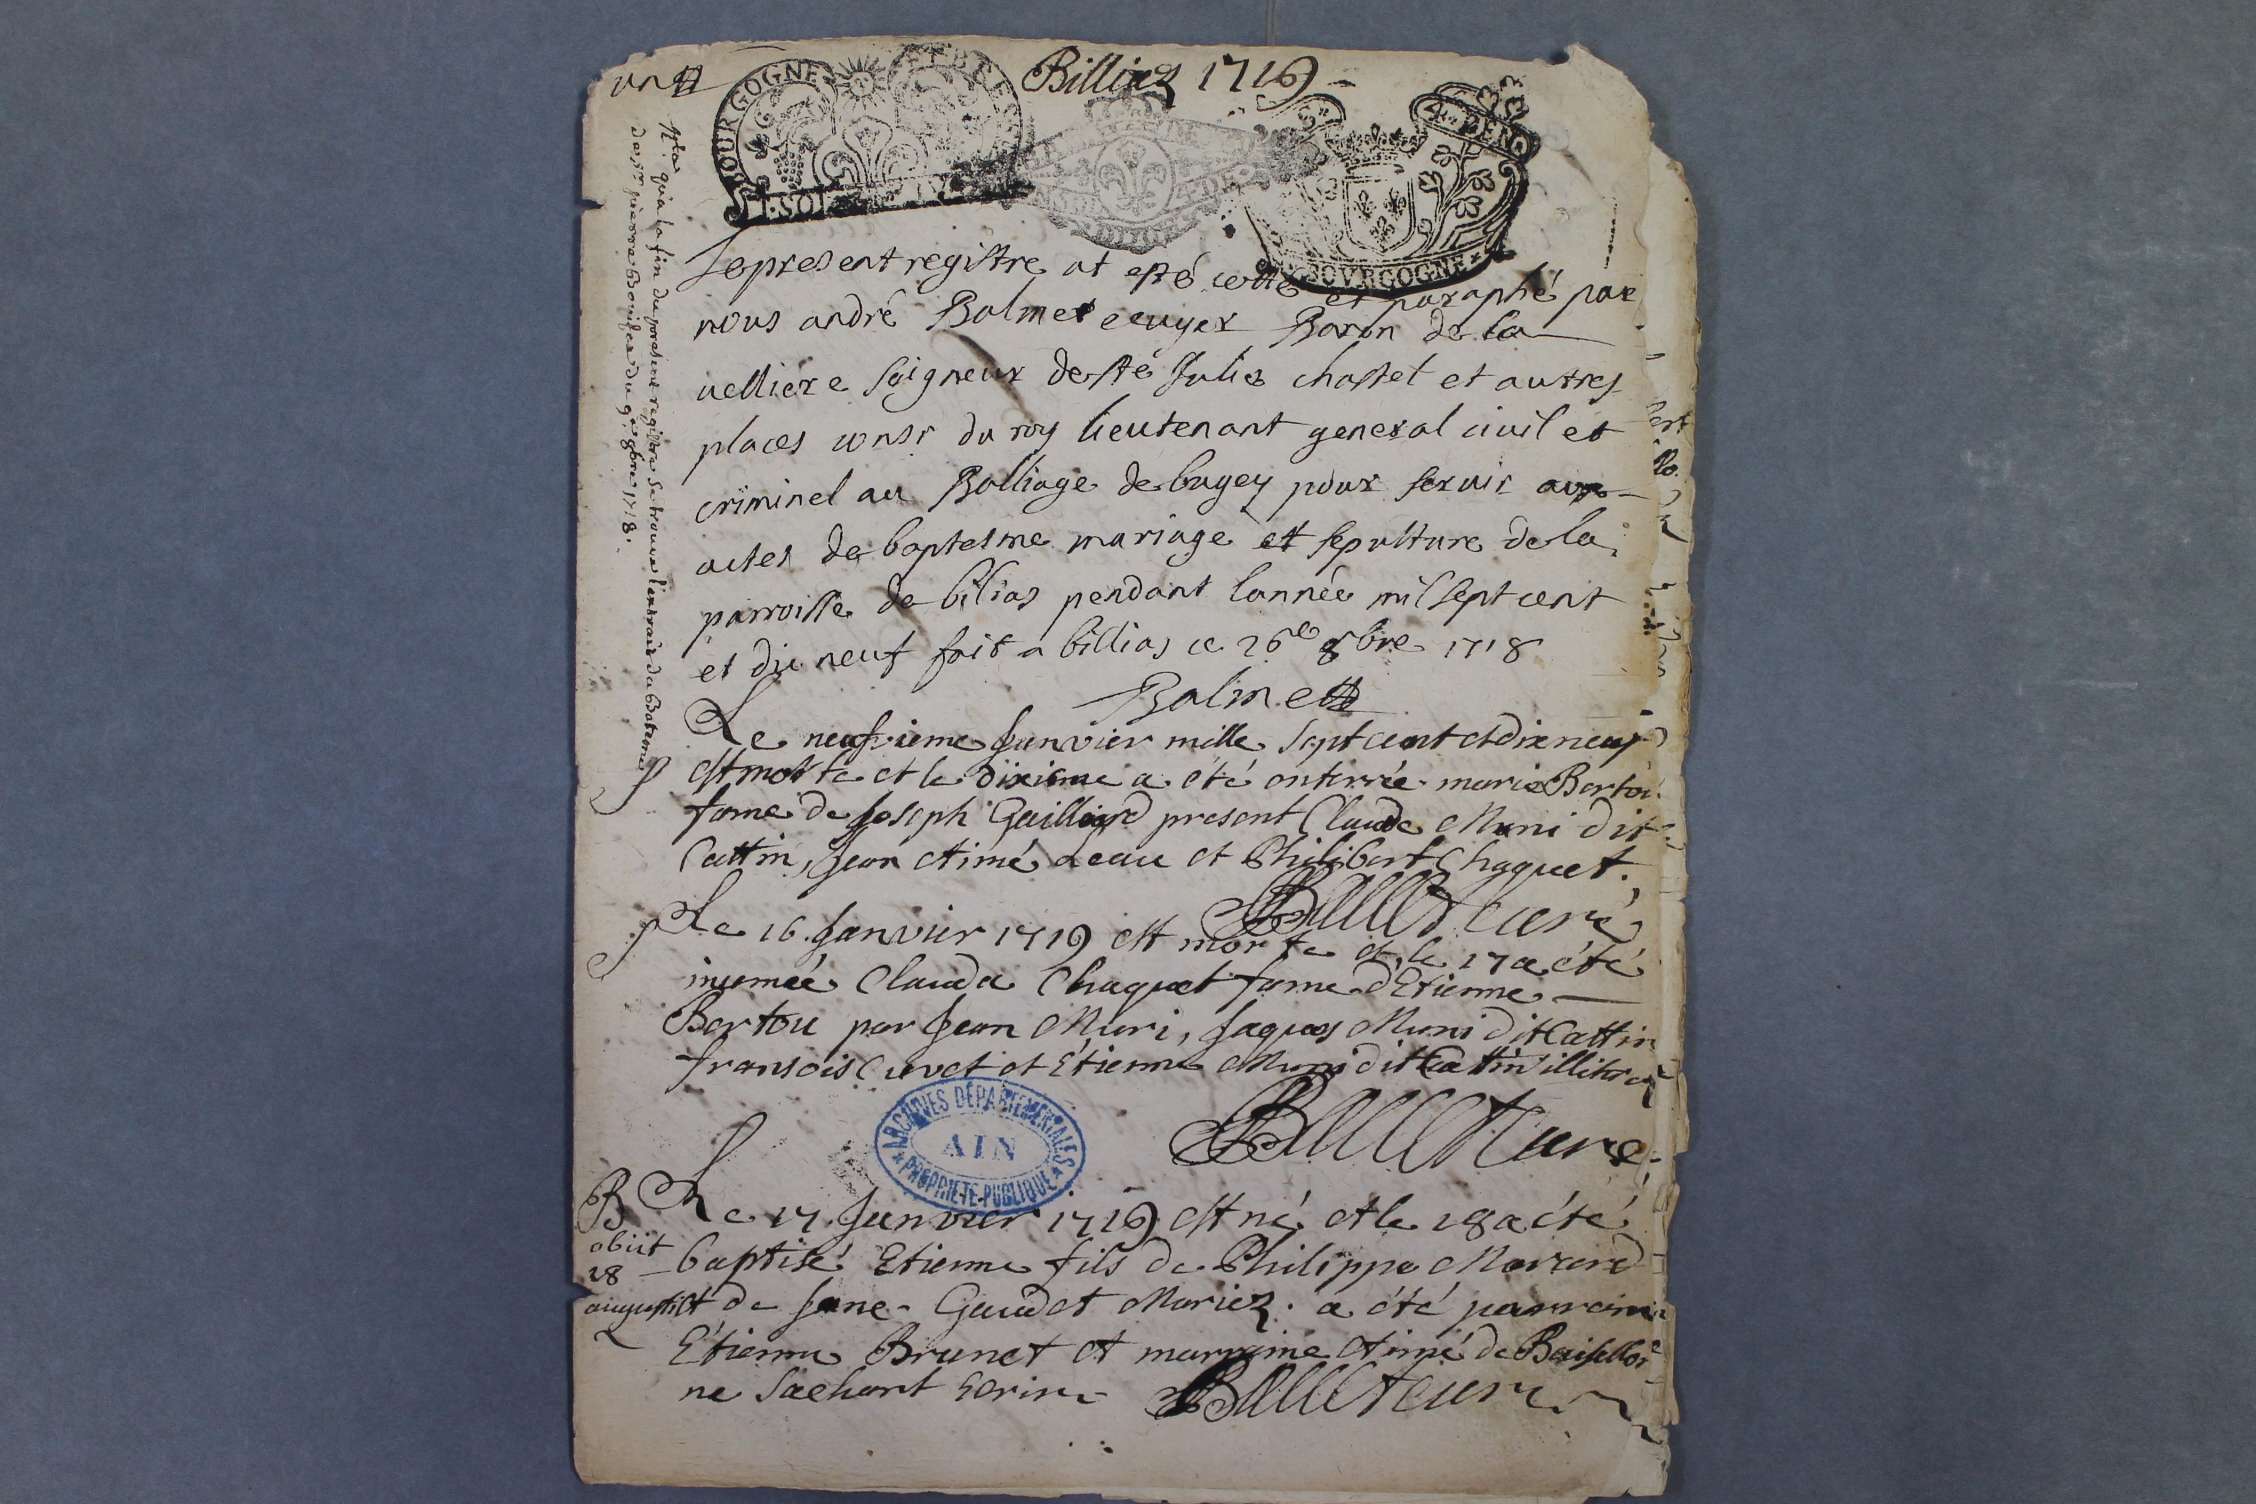 Billiaz 1719
BOURGOGNE ET BRESSE
4.DEN.
BOVRGOGNE
Nta qu'a la fin du present registre se trouve l'extrait du Bateme
de pierre Bouder du 9e 8bre 1718.
Le present registre at esté cotté et paraphé par
nous andré Balmet ecuyer Baron de la
velliere seigneur de sté Julie chastel et autres
places consr du roy lieutenant general civil et
criminel au Balliage de bugey pour servir aux
actes de baptesme mariage et sepulture de la
parroisse de bilias pendant lannée mil sept cent
et dix neuf fait a billias ce 26e 8bre 1718
Balmet
Le neufvieme Janvier mille sept cent et dix neuf
est morte et le dixieme a été enterrée marie Bertou
fame de Joseph Gailliard present Claude Muni dit
Cattin, Jean Aimé Leau et Philibert Chaquet.
Ballet curé
Le 16. Janvier 1719 est morte et le 17 a été
inumée Clauda Chaquet fame d'Etienne
Bertou par Jean Muri, Jaques Muni dit Cattin
fransois Cuvet et Etienne Muni dit Cattin illitérés
Ballet curé
B
obiit
28
augusti
Le 17 Janvier 1719 est né et le 18 a été
baptisé Etienne fils de Philippe Morard
et de Jane Gaudet Mariez. a été parrain
Etienne Brunet et marraine Aimé de Boissellor
ne sachant ecrire
Ballet curé
ARCHIVES DÉPARTEMENTALES
AIN
PROPRIETE PUBLIQUE